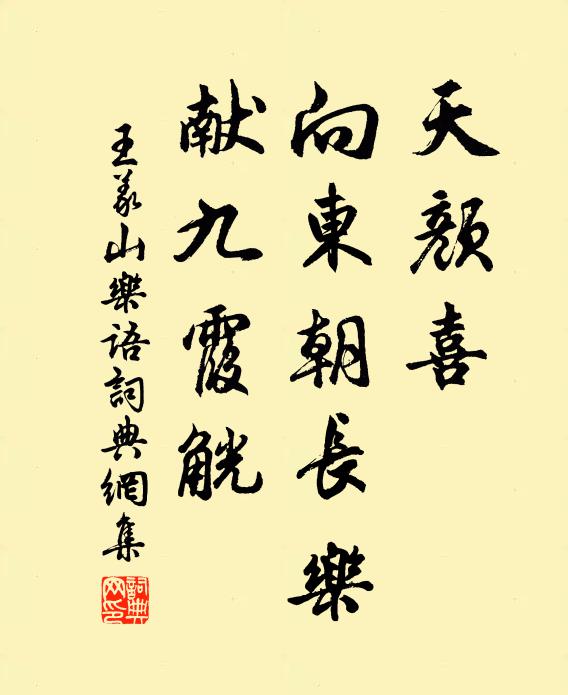 天顔喜
向東朝長樂
献九霞觥
王义山樂语詞典網集
詞典網印